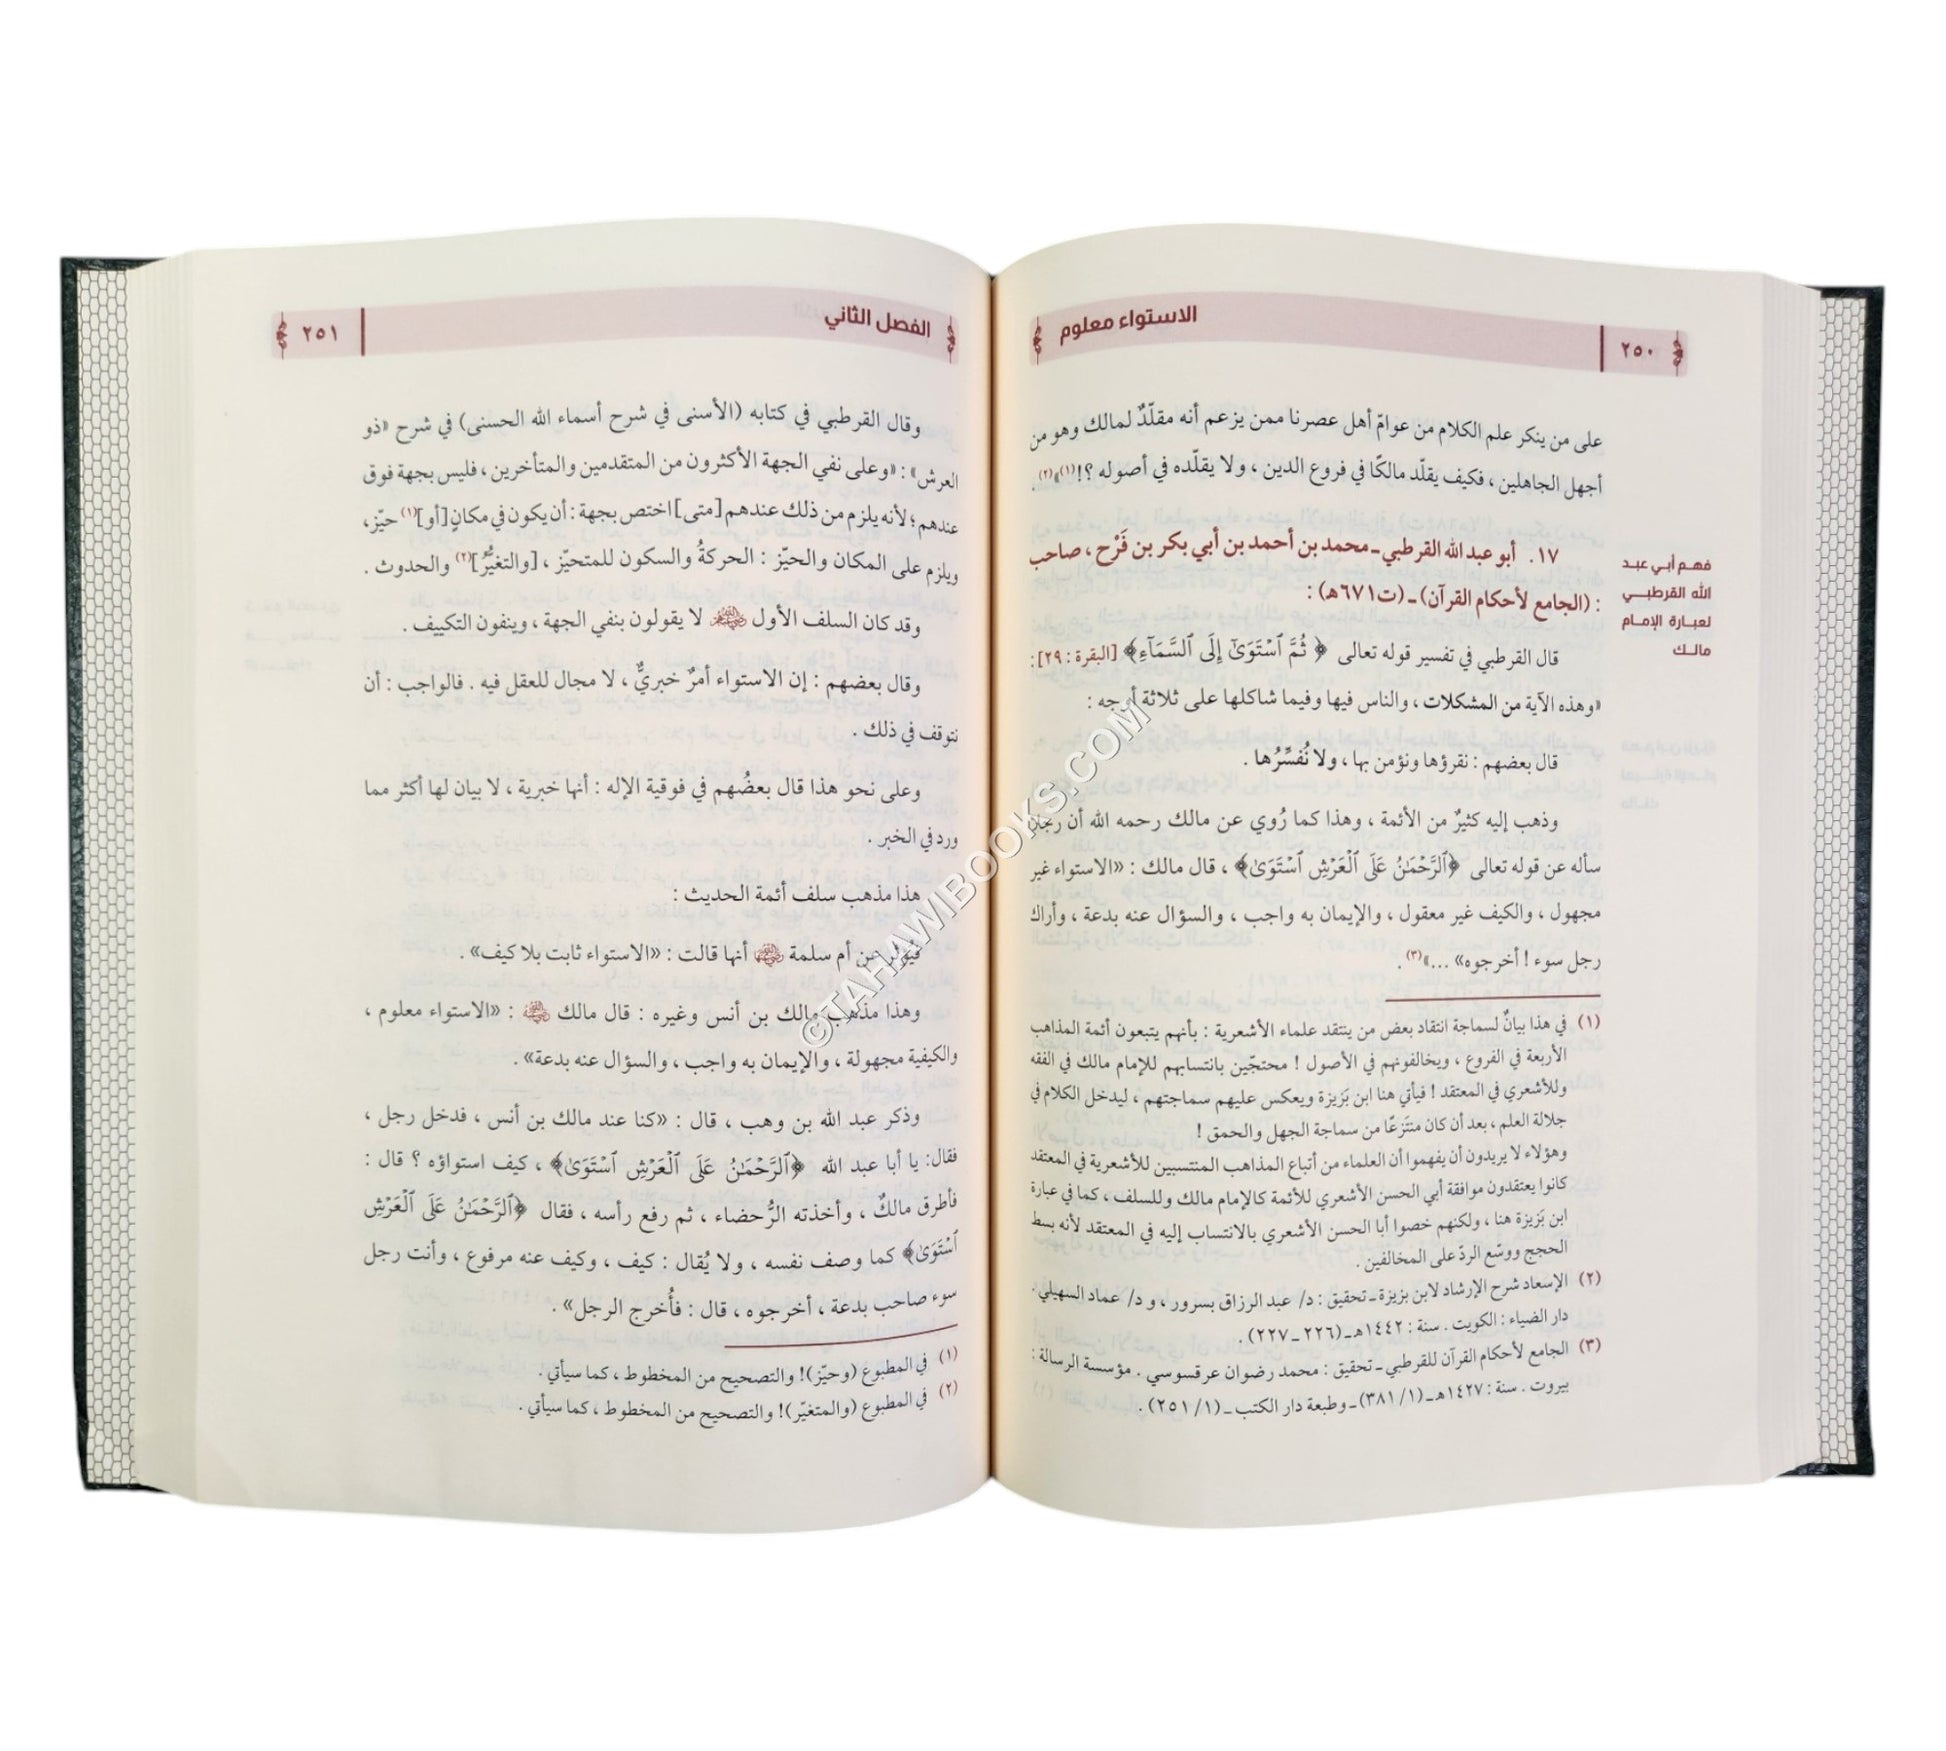 ٢٥٠
الاستواء معلوم
على من ينكر علم الكلام من عوامّ أهل عصرنا ممن يزعم أنه مقلّدٌ لمالك وهو من
أجهل الجاهلين ، فكيف يقلّد مالكًا في فروع الدين ، ولا يقلّده في أصوله ؟!(١)»(٢) .
فهم أبي عبد
الله القرطبي
لعبارة الإمام
مالك
١٧. أبو عبد الله القرطبي ـ محمد بن أحمد بن أبي بكر بن فَرْح ، صاحب
: (الجامع لأحكام القرآن) ـ (ت٦٧١هـ) :
قال القرطبي في تفسير قوله تعالى ﴿ ثُمَّ ٱسْتَوَىٰٓ إِلَى ٱلسَّمَآءِ﴾ [البقرة : ٢٩] :
«وهذه الآية من المشكلات ، والناس فيها وفيما شاكلها على ثلاثة أوجه :
قال بعضهم : نقرؤها ونؤمن بها ، ولا نُفسِّرُها .
وذهب إليه كثيرٌ من الأئمة ، وهذا كما رُوي عن مالك رحمه الله أن رجلًا
سأله عن قوله تعالى ﴿ٱلرَّحْمَٰنُ عَلَى ٱلْعَرْشِ ٱسْتَوَىٰ﴾ ، قال مالك : «الاستواء غير
مجهول ، والكيف غير معقول ، والإيمان به واجب ، والسؤال عنه بدعة ، وأراك
رجل سوء ! أخرجوه» ...»(٣) .
(١) في هذا بيانٌ لسماجة انتقاد بعض من ينتقد علماء الأشعرية : بأنهم يتبعون أئمة المذاهب
الأربعة في الفروع ، ويخالفونهم في الأصول ! محتجّين بانتسابهم للإمام مالك في الفقه
وللأشعري في المعتقد ! فيأتي هنا ابن بَزيزة ويعكس عليهم سماجتهم ، ليدخل الكلام في
جلالة العلم ، بعد أن كان منتَزعًا من سماجة الجهل والحمق !
وهؤلاء لا يريدون أن يفهموا أن العلماء من أتباع المذاهب المنتسبين للأشعرية في المعتقد
كانوا يعتقدون موافقة أبي الحسن الأشعري للأئمة كالإمام مالك وللسلف ، كما في عبارة
ابن بَزيزة هنا ، ولكنهم خصوا أبا الحسن الأشعري بالانتساب إليه في المعتقد لأنه بسط
الحجج ووسّع الردّ على المخالفين .
(٢) الإسعاد شرح الإرشاد لابن بزيزة ـ تحقيق : د/ عبد الرزاق بسرور ، و د/ عماد السهيلي .
دار الضياء : الكويت . سنة : ١٤٤٢هـ ـ (٢٢٦ ـ ٢٢٧) .
(٣) الجامع لأحكام القرآن للقرطبي ـ تحقيق : محمد رضوان عرقسوسي . مؤسسة الرسالة :
بيروت . سنة : ١٤٢٧هـ ـ (١/ ٣٨١) ـ وطبعة دار الكتب ـ (١/ ٢٥١) .
الفصل الثاني
٢٥١
وقال القرطبي في كتابه (الأسنى في شرح أسماء الله الحسنى) في شرح «ذو
العرش» : «وعلى نفي الجهة الأكثرون من المتقدمين والمتأخرين ، فليس بجهة فوق
عندهم ؛ لأنه يلزم من ذلك عندهم [متى] اختص بجهة : أن يكون في مكانٍ [أو](١) حيّز ،
ويلزم على المكان والحيّز : الحركةُ والسكون للمتحيّز ، [والتغيُّرُ](٢) والحدوث .
وقد كان السلف الأول ﵃ لا يقولون بنفي الجهة ، وينفون التكييف .
وقال بعضهم : إن الاستواء أمرٌ خبريٌّ ، لا مجال للعقل فيه . فالواجب : أن
نتوقف في ذلك .
وعلى نحو هذا قال بعضُهم في فوقية الإله : أنها خبرية ، لا بيان لها أكثر مما
ورد في الخبر .
هذا مذهب سلف أئمة الحديث :
فيُؤثر عن أم سلمة ﵂ أنها قالت : «الاستواء ثابت بلا كيف» .
وهذا مذهب مالك بن أنس وغيره : قال مالك ﵁ : «الاستواء معلوم ،
والكيفية مجهولة ، والإيمان به واجب ، والسؤال عنه بدعة» .
وذكر عبد الله بن وهب ، قال : «كنا عند مالك بن أنس ، فدخل رجل ،
فقال: يا أبا عبد الله ﴿ٱلرَّحْمَٰنُ عَلَى ٱلْعَرْشِ ٱسْتَوَىٰ﴾ ، كيف استواؤه ؟ قال :
فأطرق مالكٌ ، وأخذته الرُّحضاء ، ثم رفع رأسه ، فقال ﴿ٱلرَّحْمَٰنُ عَلَى ٱلْعَرْشِ
ٱسْتَوَىٰ﴾ كما وصف نفسه ، ولا يُقال : كيف ، وكيف عنه مرفوع ، وأنت رجل
سوء صاحب بدعة ، أخرجوه ، قال : فأُخرج الرجل» .
(١) في المطبوع (وحيّز)! والتصحيح من المخطوط ، كما سيأتي .
(٢) في المطبوع (والمتغيّر)! والتصحيح من المخطوط ، كما سيأتي .
©TAHAWIBOOKS.COM